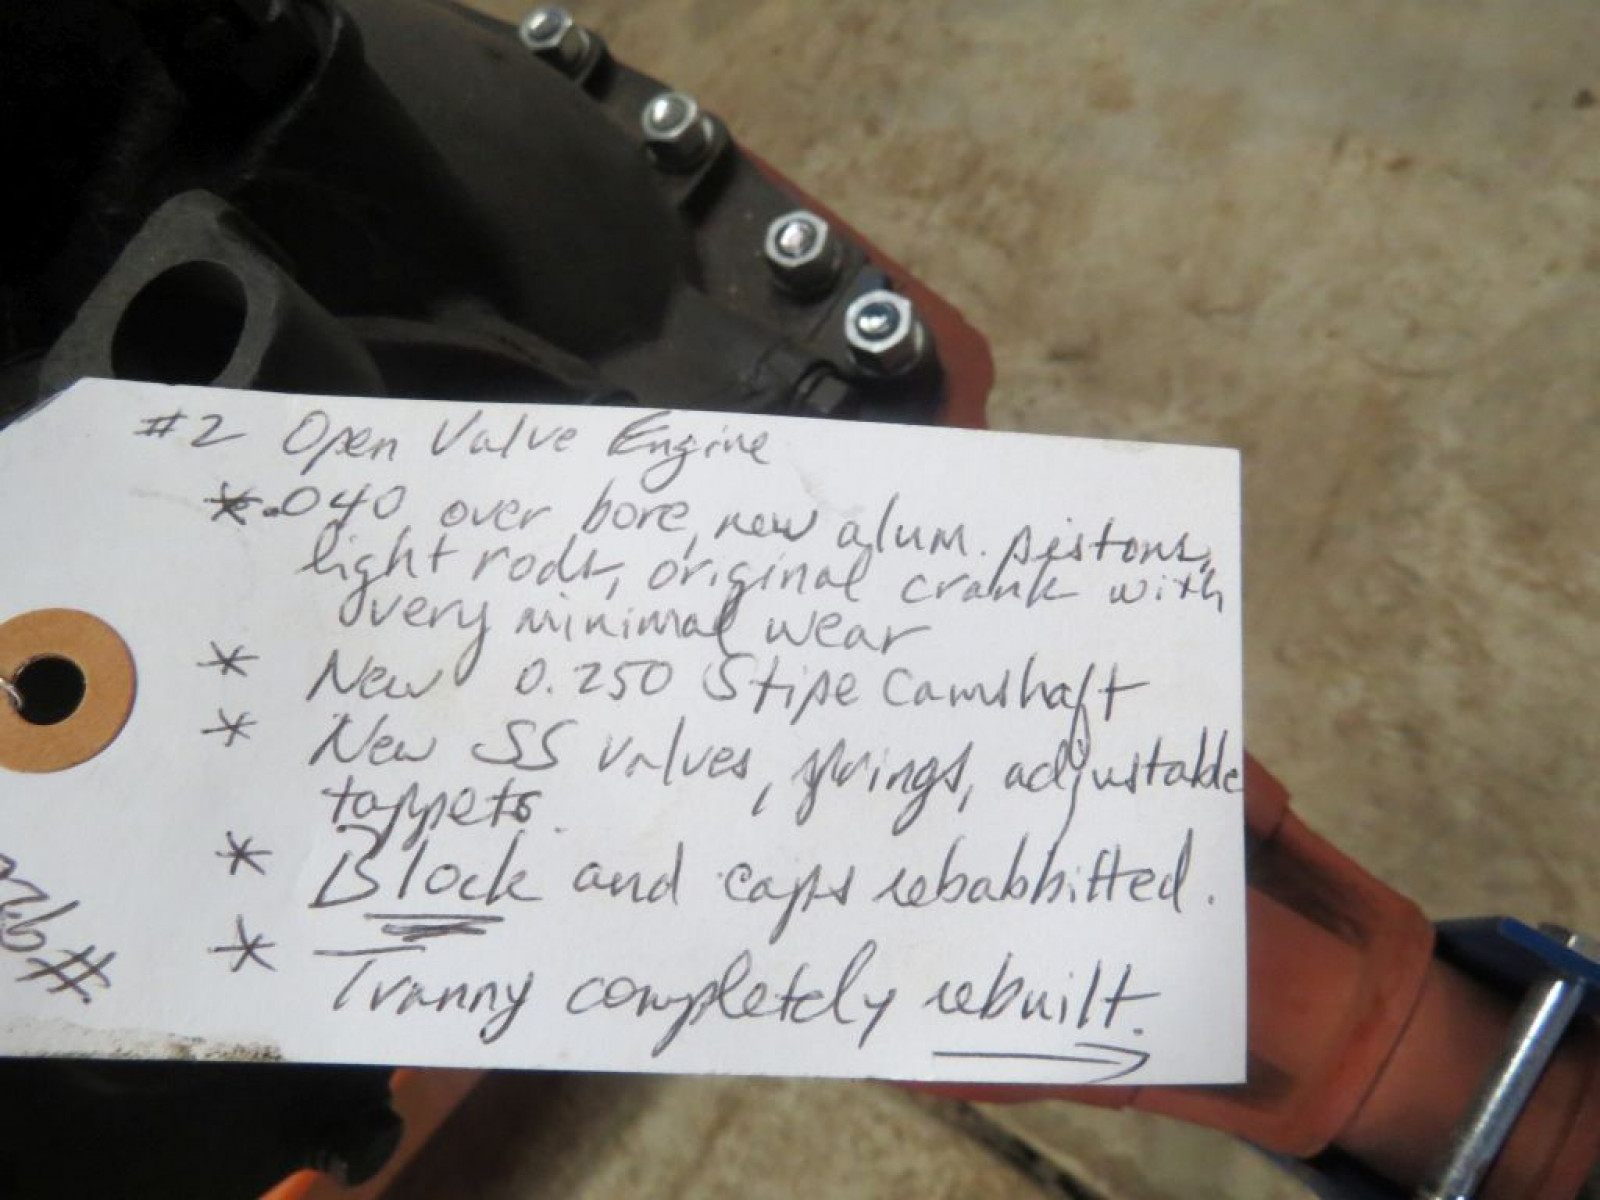 #2 Open Valve Engine
* .040 over bore, new alum. pistons,
light rods, original crank with
very minimal wear
* New 0.250 Stipe camshaft
* New SS valves, springs, adjustable
tappets.
* Block and caps rebabbitted.
* Tranny completely rebuilt.